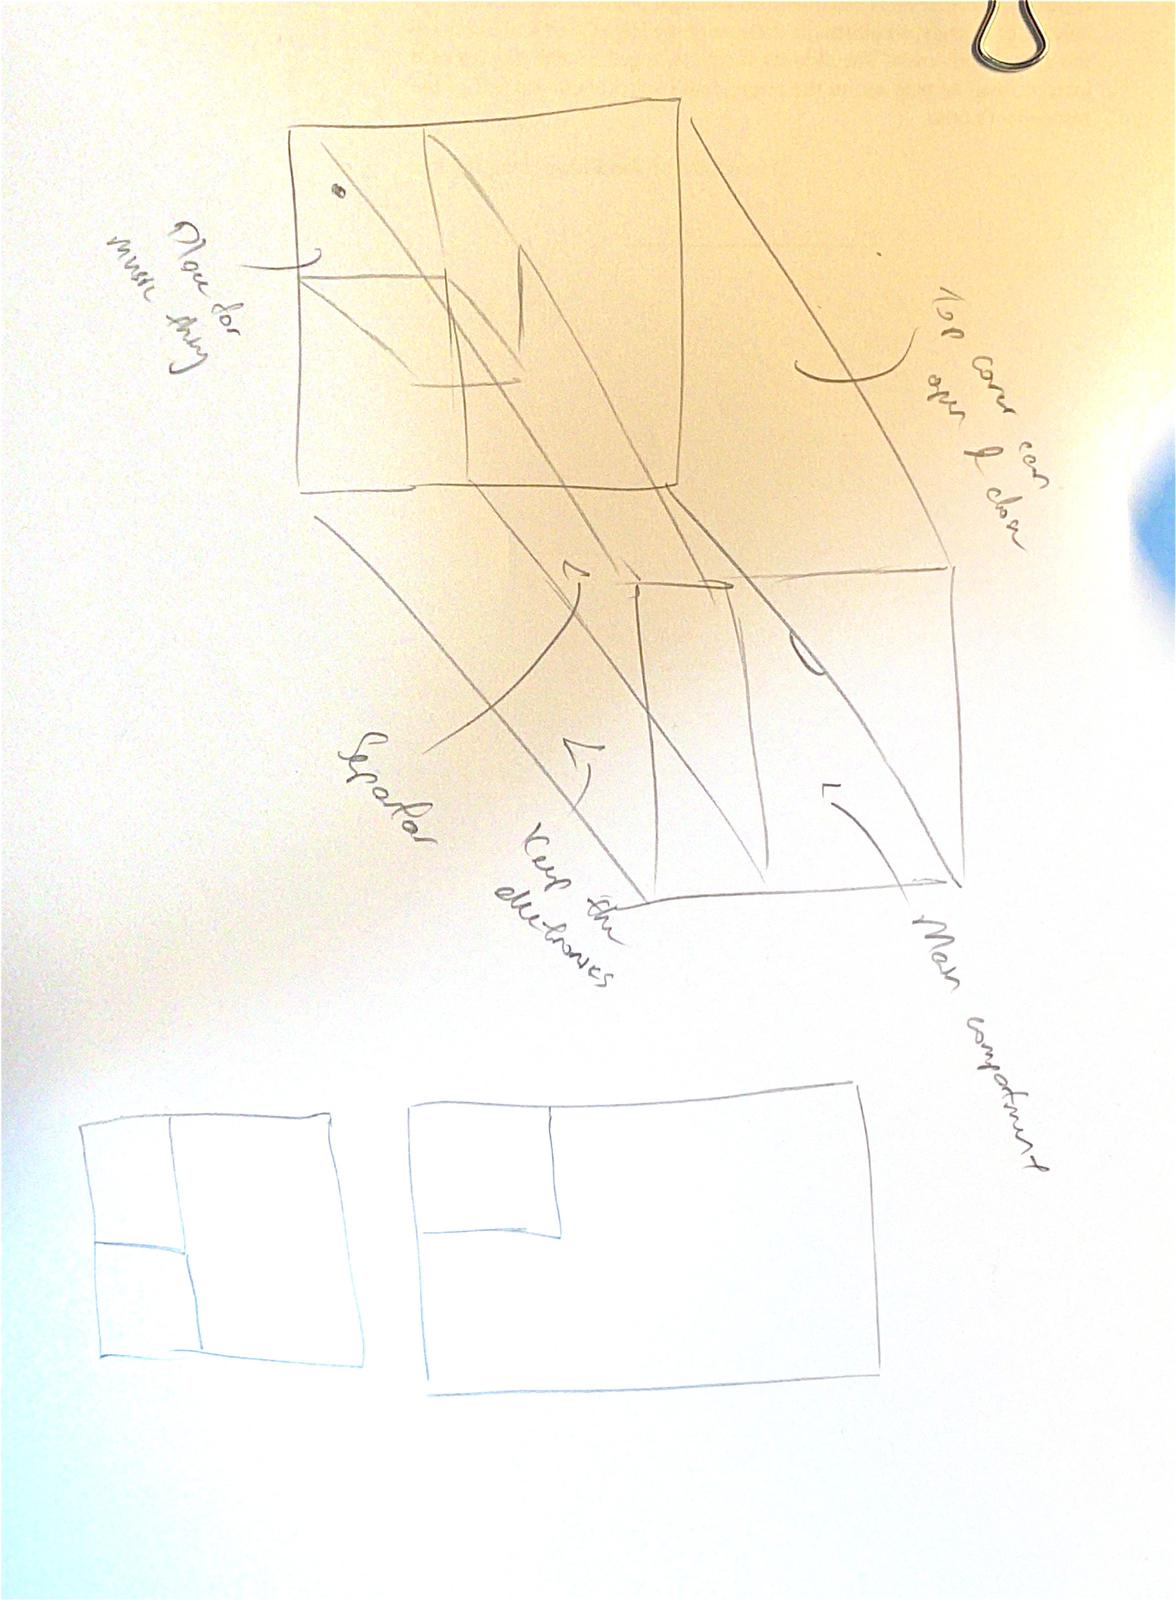 Top cover can
open & close
Main compartment
Keep the
electronics
Separtor
Place for
music thing